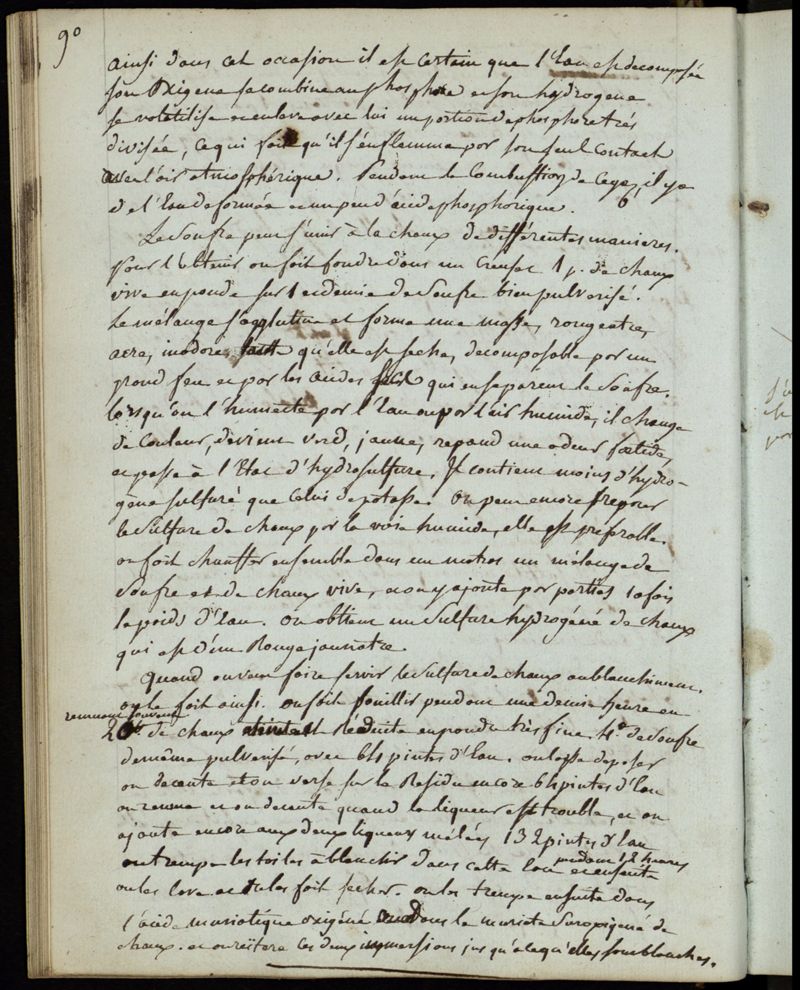 90
ainsi dans cet occasion il est certain que l'Eau est decomposée
son Oxigene se combine au phosphore et son hydrogene
se volatilise et enleve avec lui un portion de phosphore trés
divisée, ce qui fait qu'il s'enflamme par son seul contact
avec l'air atmosphérique. Pendant la Combustion de ce gaz, il y a
d et l'Eau de formée et un peu d'acide phosphorique.
Le Soufre peut s'unir a la chaux de différentes manieres.
pour l'obtenir on fait fondre dans un Creuset 1 p. de chaux
vive en poudre sur 1 et demie de Soufre bien pulverisé.
Le mélange s'agglutine et forme une masse, rougeatre,
acre, inodore, tant qu'elle est seche, decomposable par un
grand feu et par les acides qui en separent le Soufre.
lorsqu'on l'humecte par l'Eau ou par l'air humide, il change
de Couleur, devient verd, jaune, repand une odeur foetide,
et passe à l'Etat d'hydrosulfure. Il contient moins d'hydro-
gène sulfuré que Celui de potasse. On peut encore preparer
le Sulfure de chaux par la voie humide, elle est préférable.
on fait chauffer ensemble dans un matras un mélange de
Soufre et de chaux vive, et on y ajoute par parties 10 fois
le poids d'Eau. on obtient un Sulfure hydrogéné de chaux
qui est d'un Rouge jaunatre.
Quand on veut faire servir le Sulfure de chaux au blanchiment.
on le fait ainsi. on fait bouillir pendant une demie heure en
remuant souvent
20 de chaux Réduite en poudre très fine, 4 de Soufre
de même pulverisé, avec 64 pintes d'Eau. on laisse deposer
on decante et on verse sur le Residu encore 64 pintes d'Eau
on remue et on decante quand la liqueur est trouble, et on
ajoute encore aux deux liqueurs mélées 132 pintes d'Eau
on trempe les toiles a blanchir dans cette Eau pendant 12 heures et ensuite
on les lave et on les fait secher. on les trempe ensuite dans
l'acide muriatique oxigéné ou dans le muriate Suroxigené de
chaux. et on reitere ces deux immersions jusqu'a ce qu'elles sont blanches.